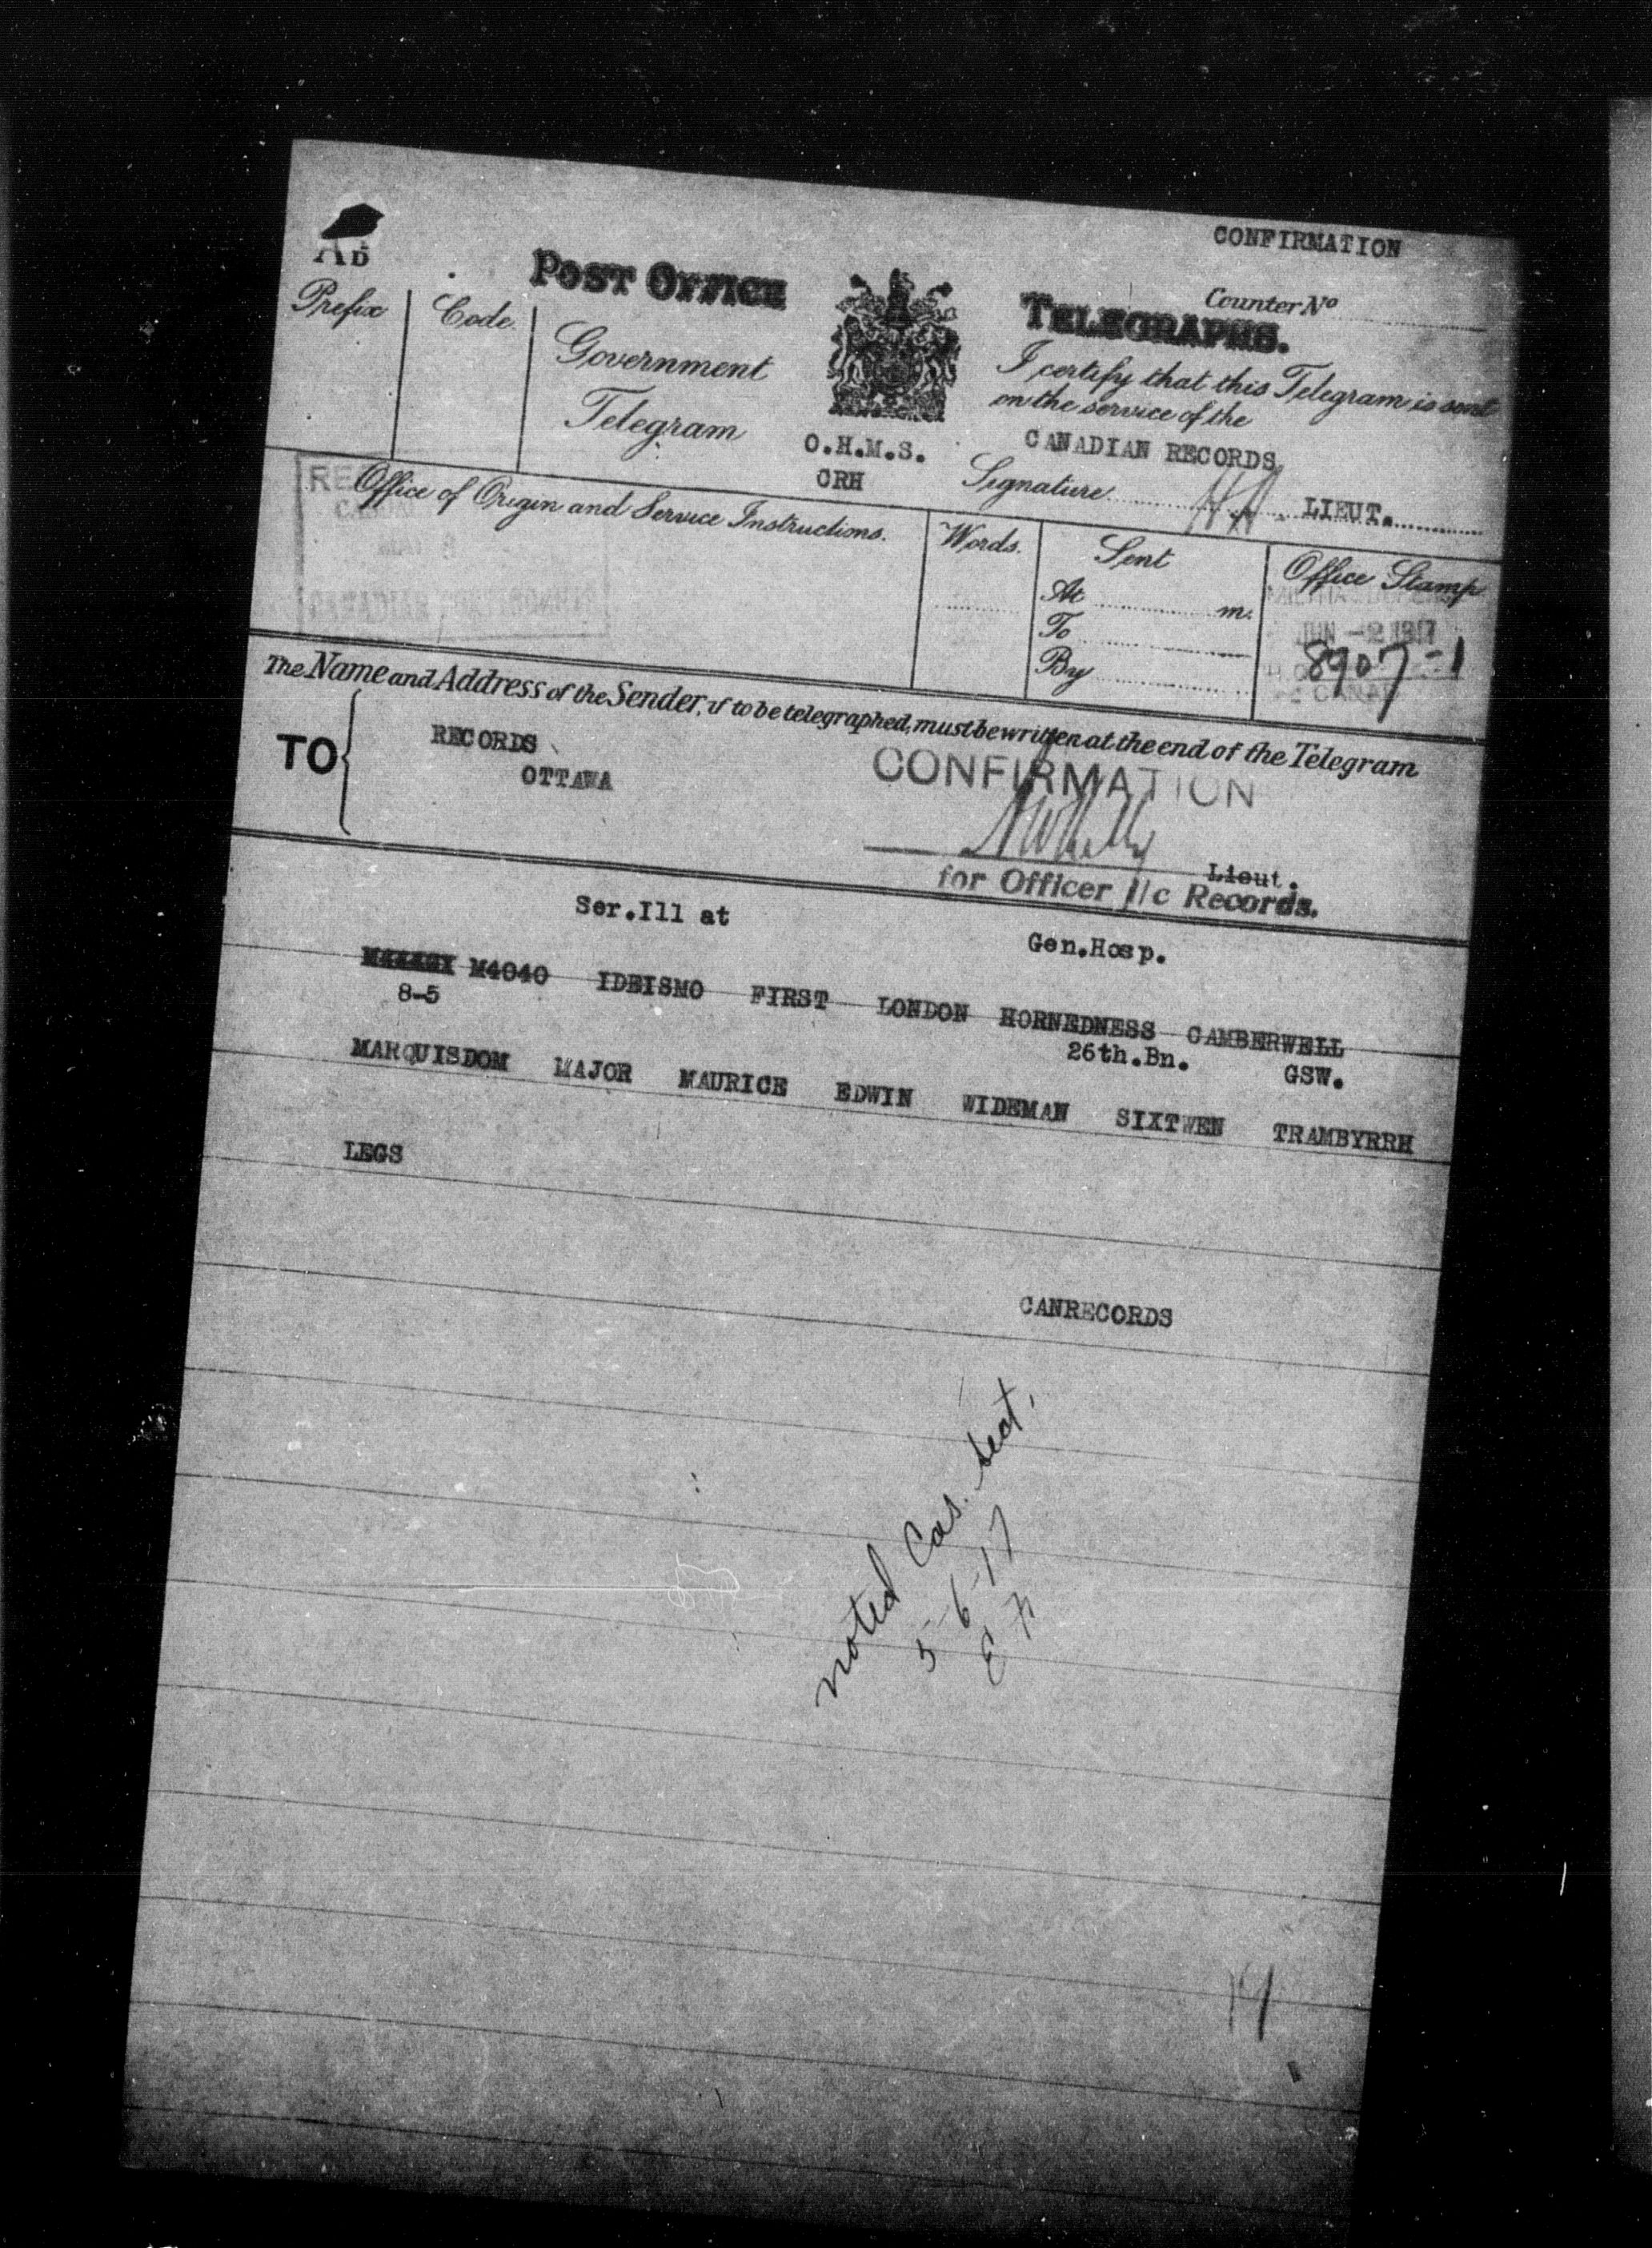 CONFIRMATION
POST OFFICE
TELEGRAPHS.
Counter No
Prefix
Code.
Government
Telegram
O.H.M.S.
CRH
I certify that this Telegram is sent
on the service of the
CANADIAN RECORDS
Signature LIEUT.
Office of Origin and Service Instructions.
Words.
Sent
At m.
To
By
Office Stamp
JUN -2 1917
8907-1
CANADIAN
The Name and Address of the Sender, if to be telegraphed, must be written at the end of the Telegram
TO
RECORDS
OTTAWA
CONFIRMATION
Lieut.
for Officer i/c Records.
Ser.Ill at Gen.Hosp.
M4040 IDEISMO FIRST LONDON HORNEDNESS CAMBERWELL
8-5 26th.Bn. GSW.
MARQUISDOM MAJOR MAURICE EDWIN WIDEMAN SIXTWEN TRAMBYRRH
LEGS
CANRECORDS
noted Cas. Sect.
5-6-17
19